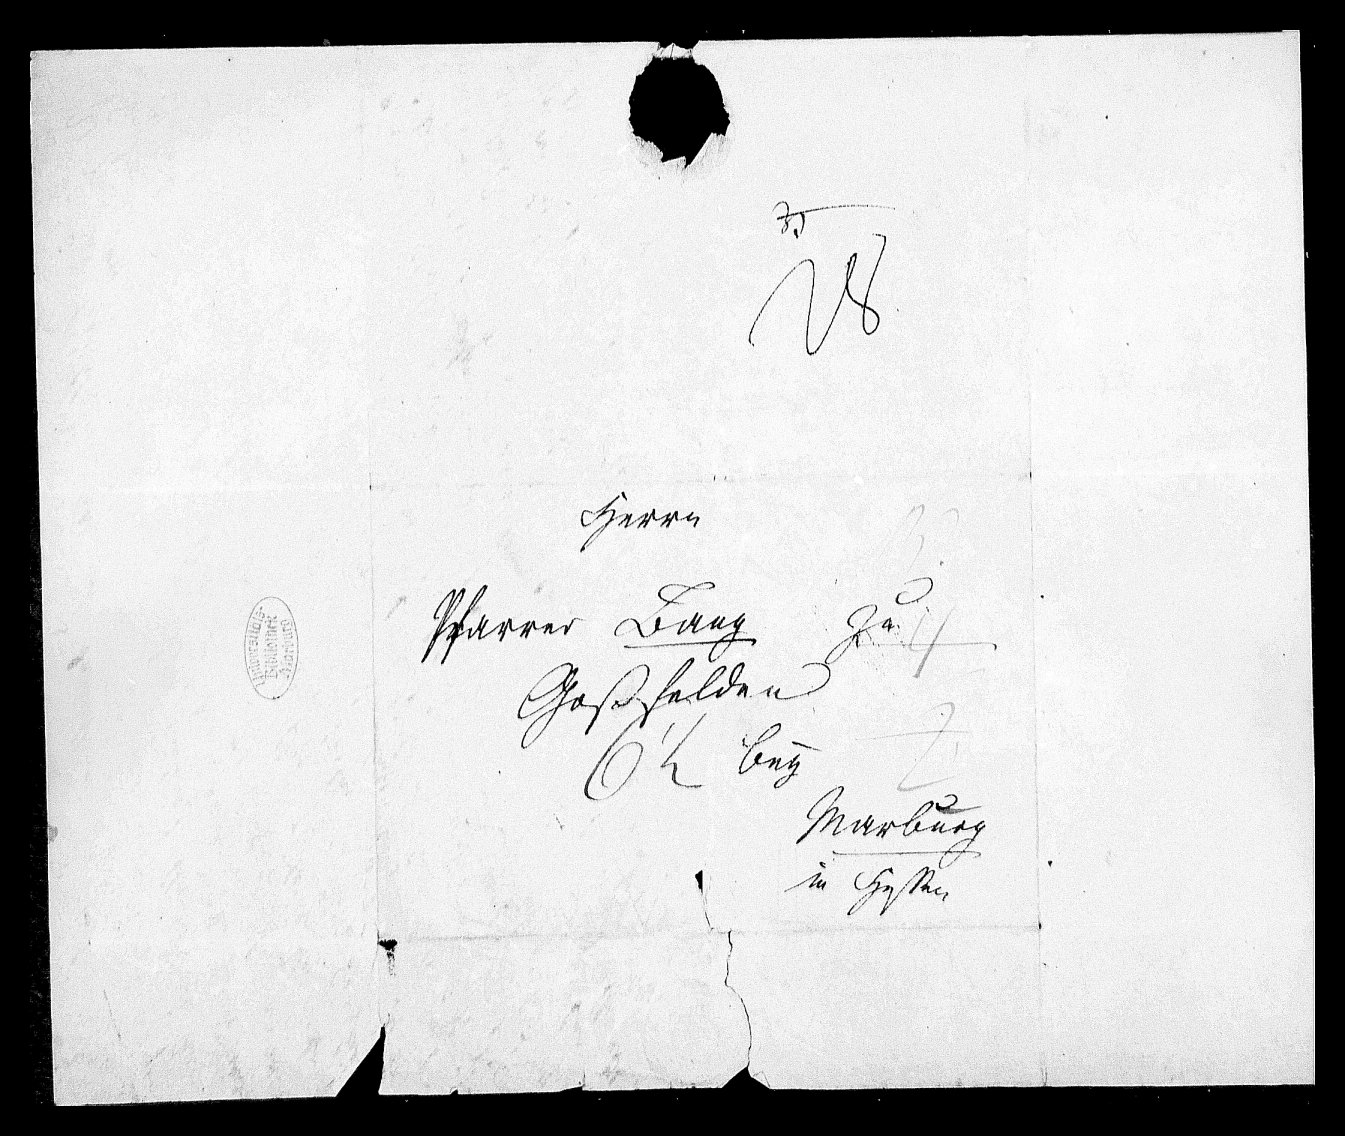 Herrn
Pfarrer Bang zu
Goßfelden
6 1/2 bey
Marburg
in Hessen
Universitäts-
Bibliothek
Marburg